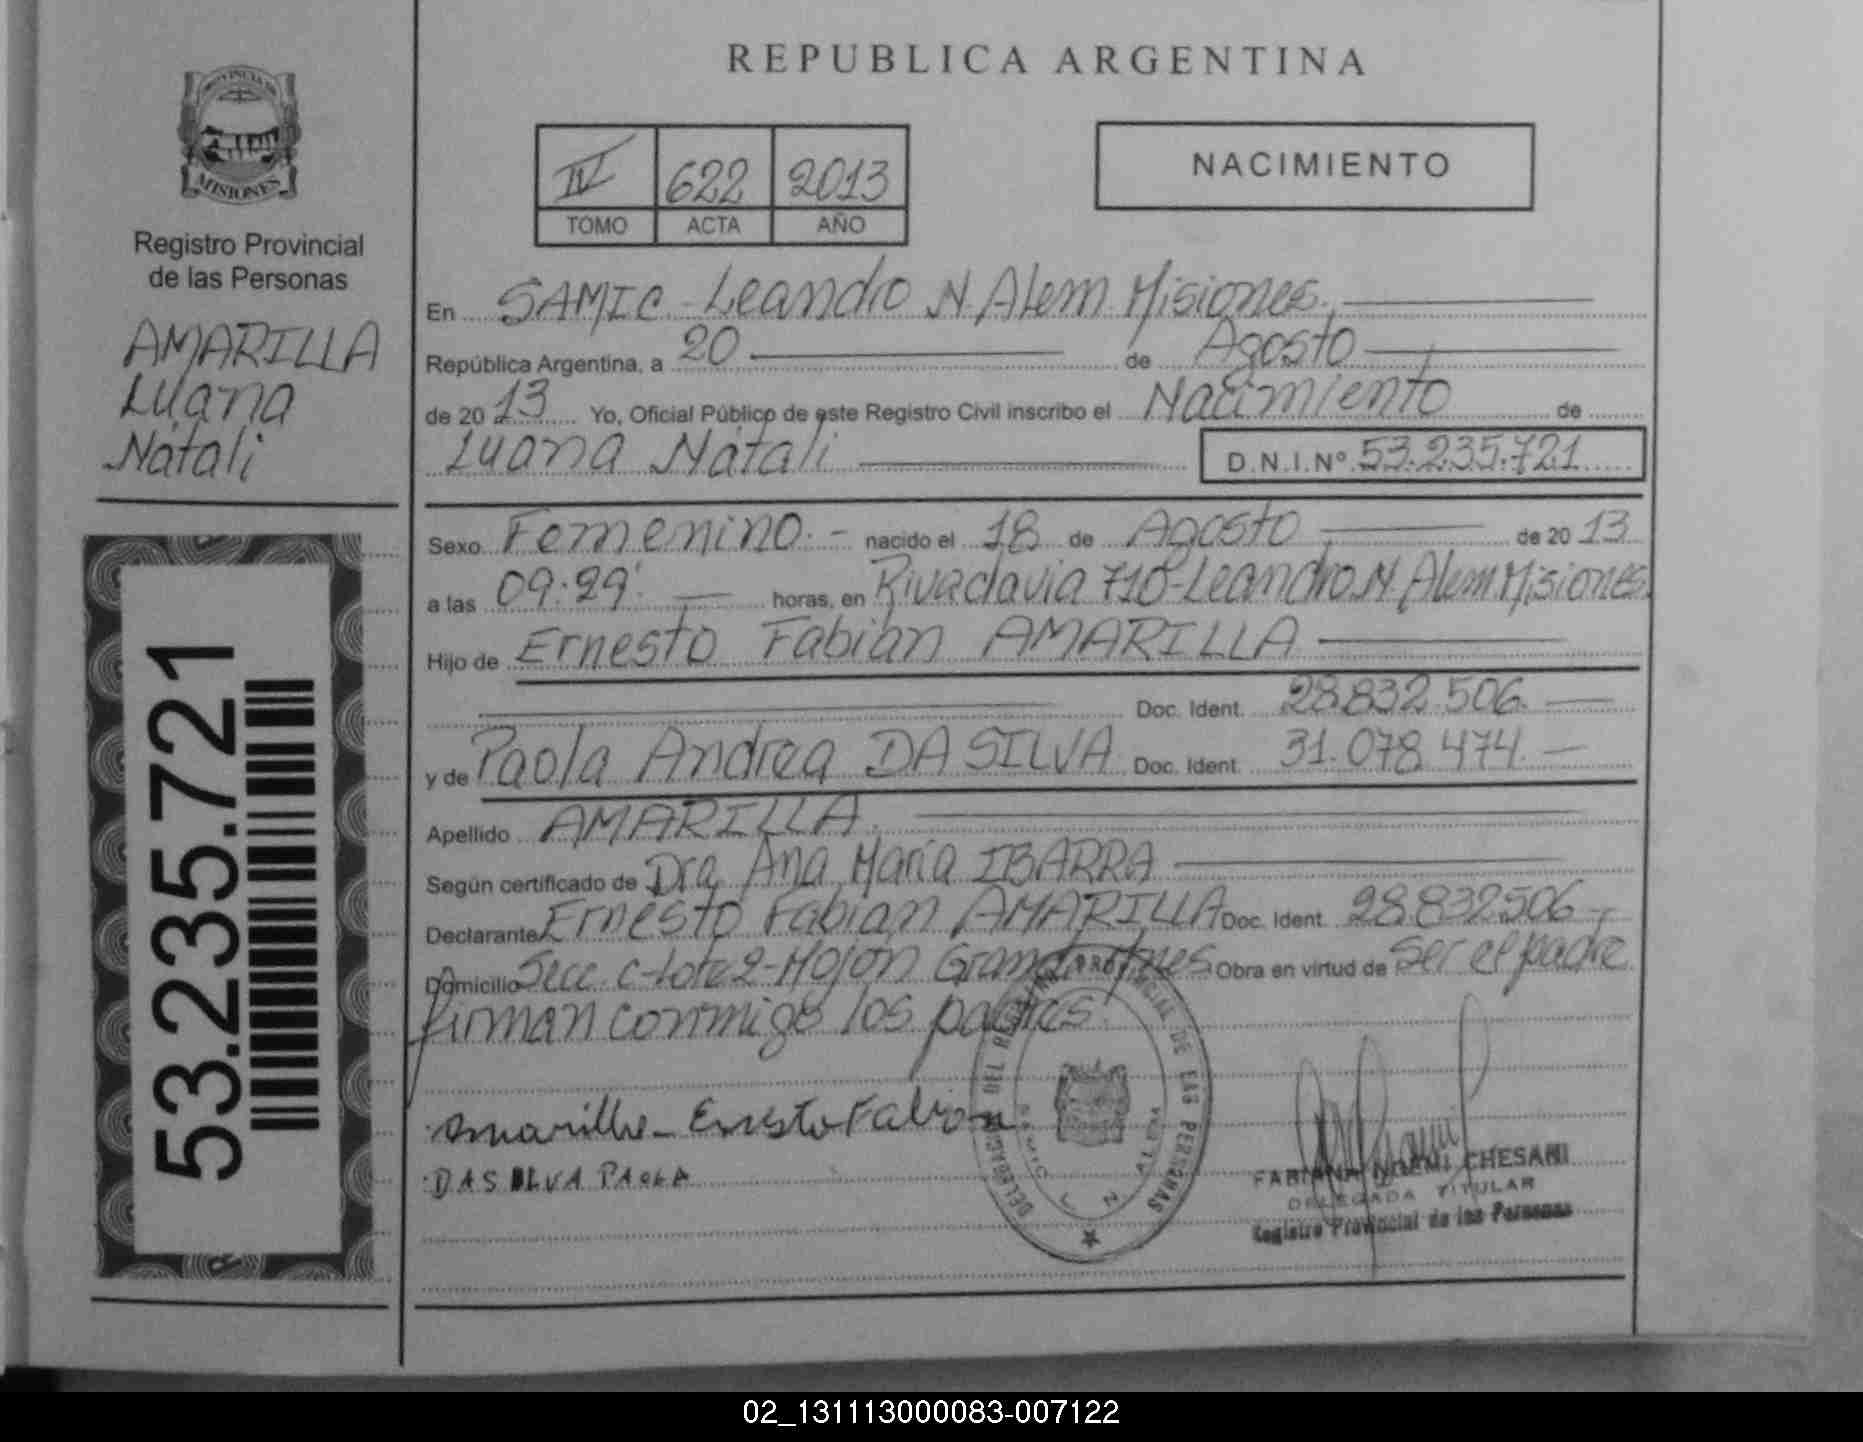 REPUBLICA ARGENTINA
PROVINCIA DE
MISIONES
Registro Provincial
de las Personas
AMARILLA
Luana
Natali
53.235.721
IV 622 2013
TOMO ACTA AÑO
NACIMIENTO
En SAMIC - Leandro N. Alem. Misiones.
República Argentina, a 20 de Agosto
de 20 13 Yo, Oficial Público de este Registro Civil inscribo el Nacimiento de
Luana Natali D.N.I.Nº 53.235.721
Sexo Femenino.- nacido el 18 de Agosto de 20 13
a las 09:29' horas, en Rivadavia 710-Leandro N. Alem. Misiones.
Hijo de Ernesto Fabian AMARILLA
Doc. Ident. 28.832.506.
y de Paola Andrea DA SILVA Doc. Ident. 31.078.474.
Apellido AMARILLA.
Según certificado de Dra. Ana Maria IBARRA
Declarante Ernesto Fabian AMARILLA Doc. Ident. 28.832.506
Domicilio Secc. C-Lote 2-Mojon Grande Obra en virtud de ser el padre
firman conmigo los padres.
Amarilla - Ernesto Fabian
DA SILVA PAOLA
DELEGACION DEL REGISTRO PROVINCIAL DE LAS PERSONAS
SAMIC L N ALEM
FABIANA NOEMI CHESANI
DELEGADA TITULAR
Registro Provincial de las Personas
02_131113000083-007122